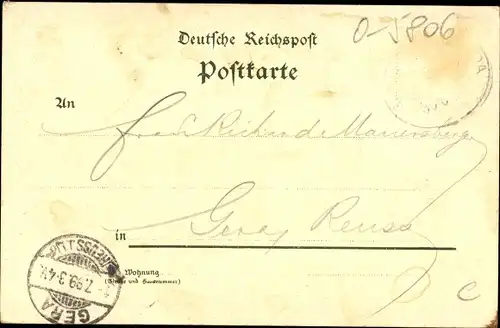 Deutsche Reichspost
O-5806
Postkarte
An
Frau Richard Mauersberger
in Gera Reuss
Wohnung
(Straße und Hausnummer)
(REUSS) J.L.
7.99.3-4
GERA
C